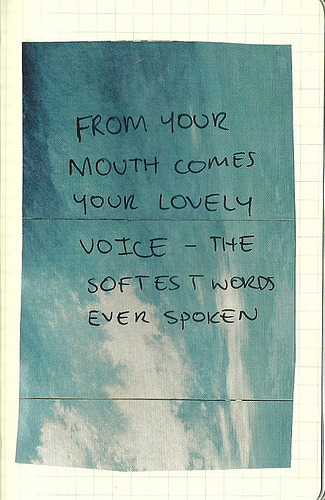 FROM YOUR
MOUTH COMES
YOUR LOVELY
VOICE - THE
SOFTEST WORDS
EVER SPOKEN